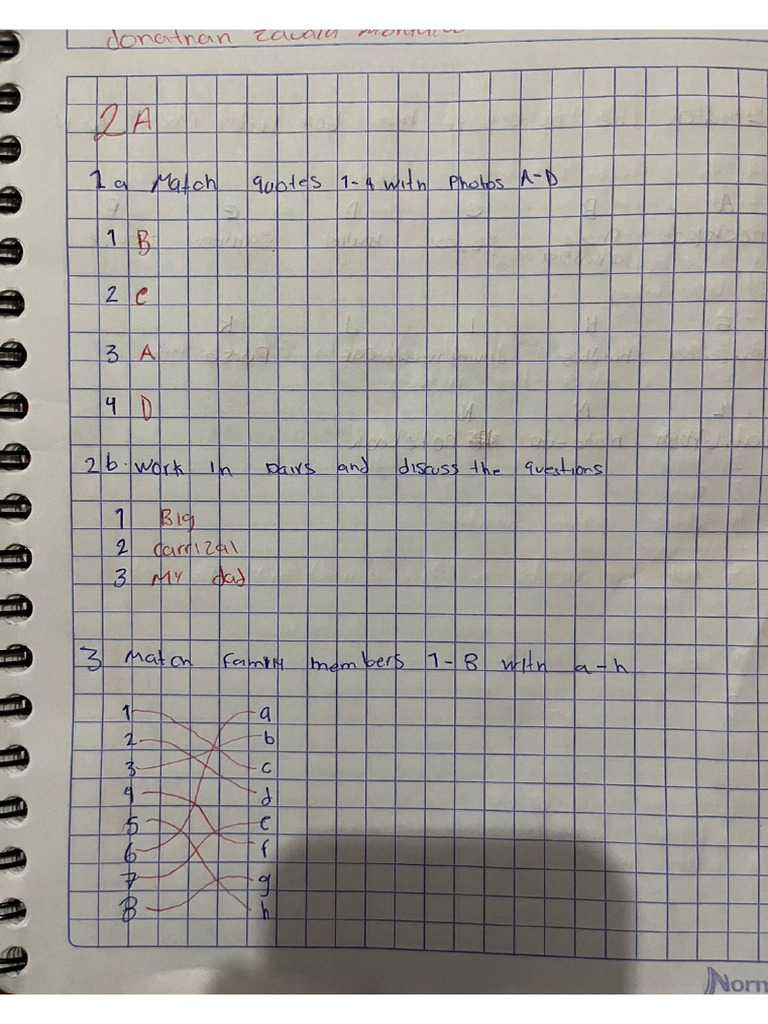 Jonathan Zavala
2 A
1 a Match quotes 1-4 with Photos A-D
1 B
2 C
3 A
4 D
2 b. Work in pairs and discuss the questions
1 Big
2 carrizal
3 My dad
3 Match family members 1-8 with a-h
1 a
2 b
3 c
4 d
5 e
6 f
7 g
8 h
Norm